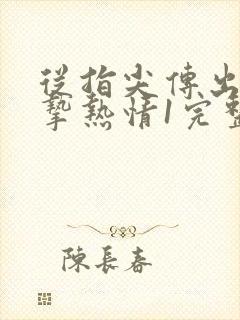 從指尖傳出
摯熱情1完整
陳長春